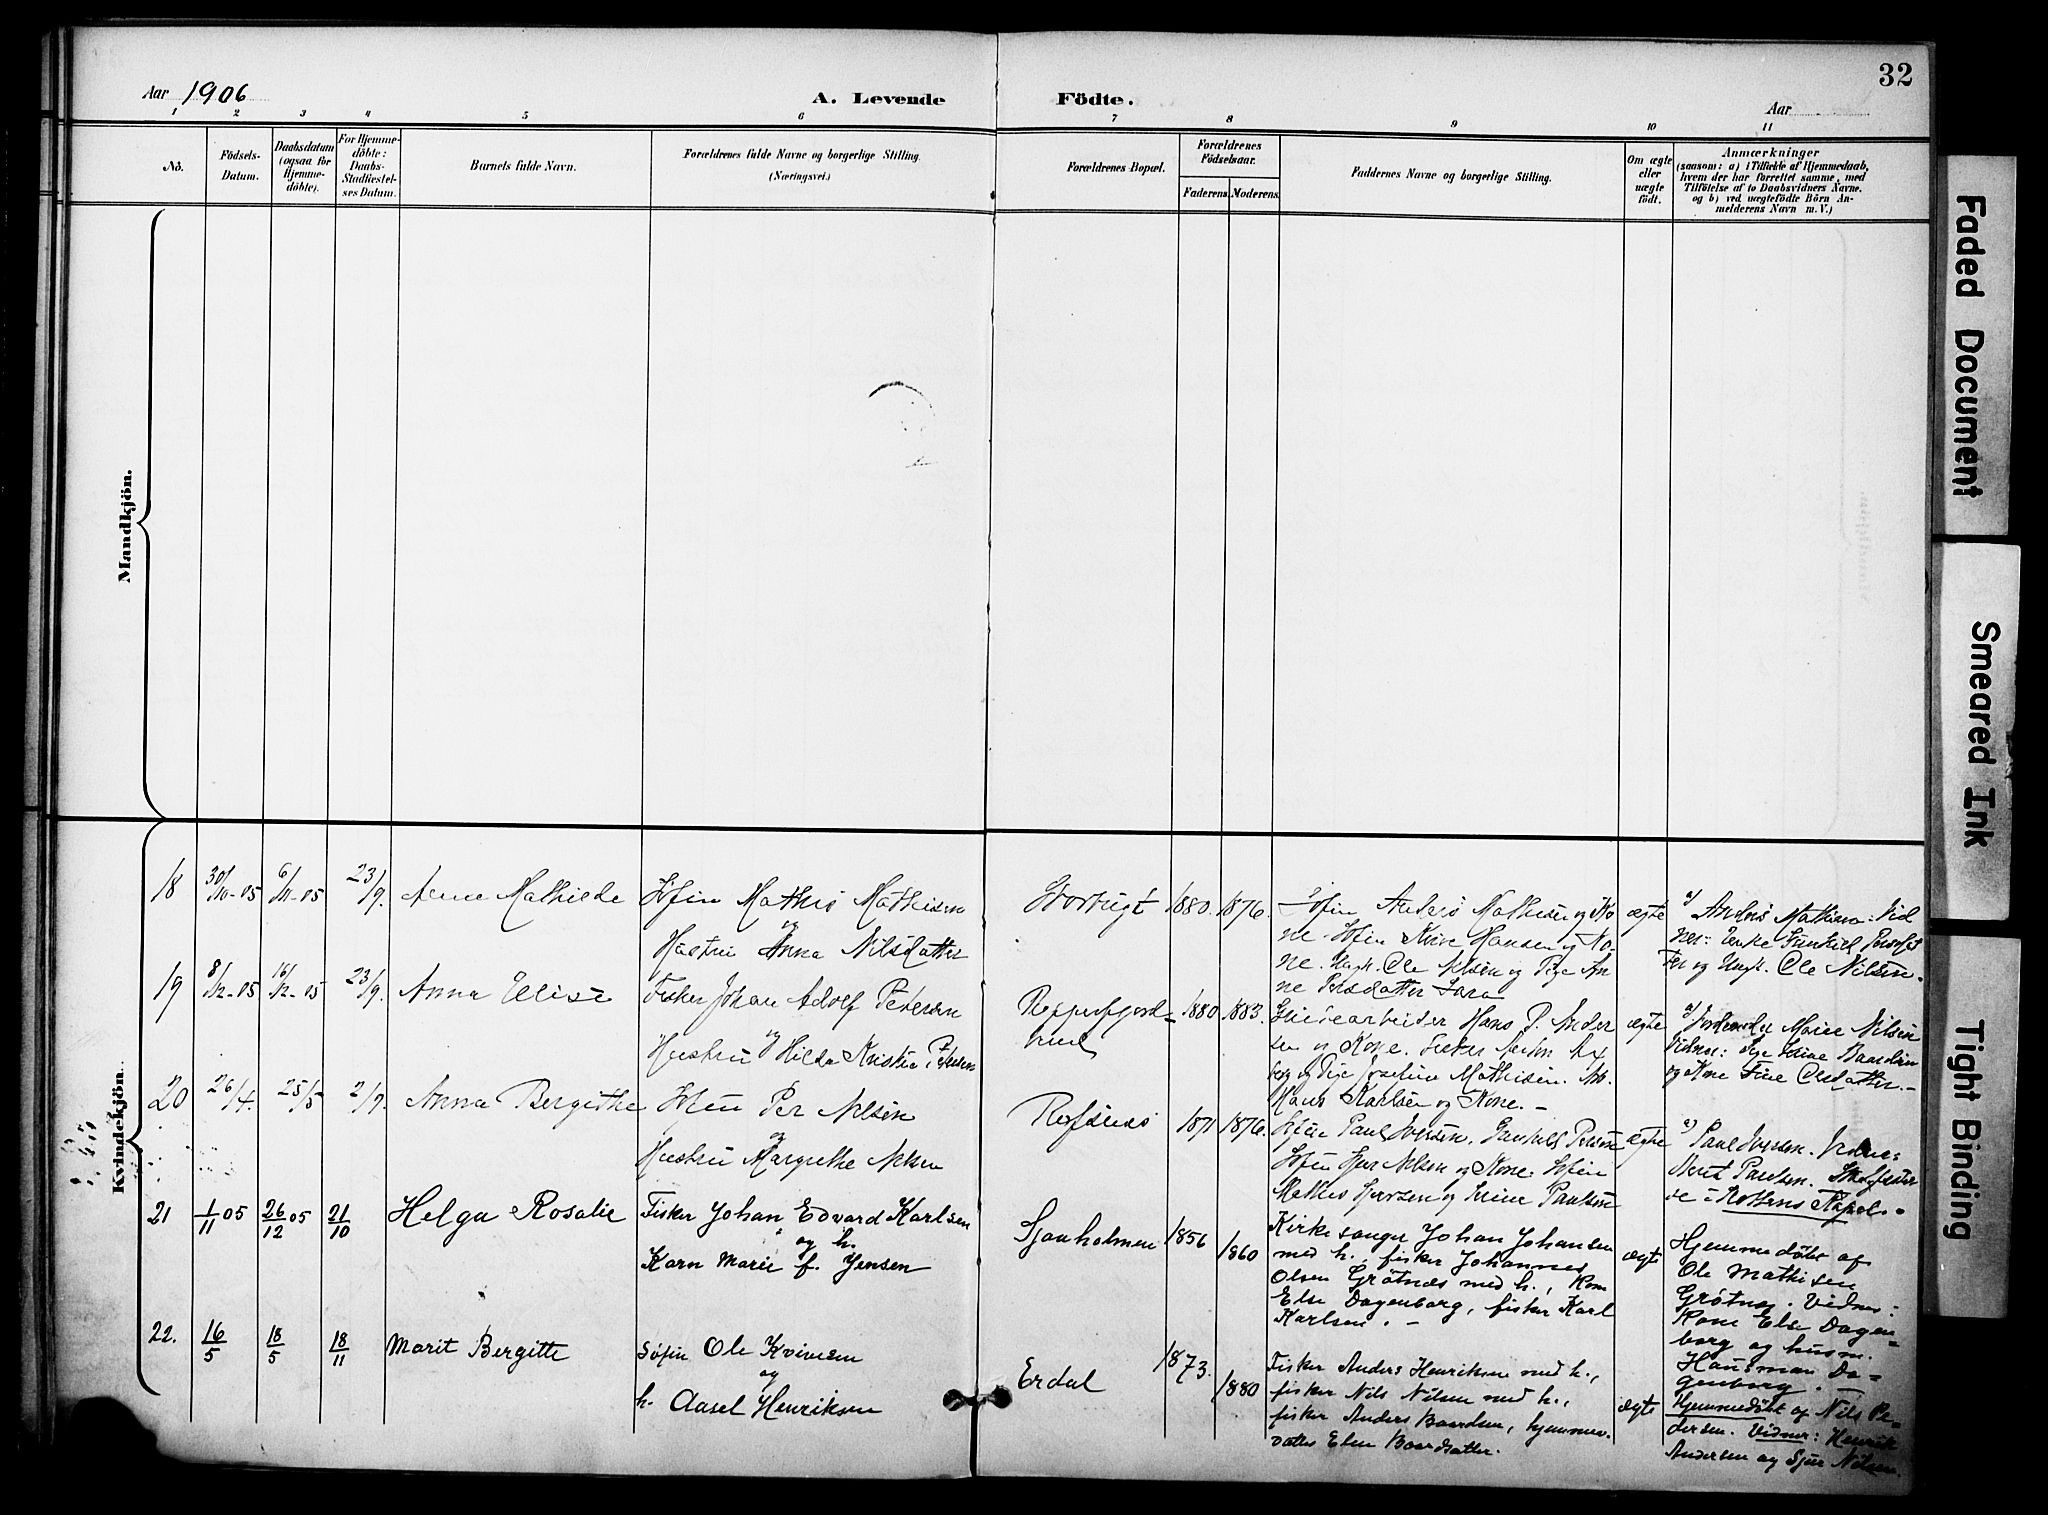 32
Aar 1906
A. Levende
Födte.
Aar
1 2 3 4 5 6 7 8 9 10 11
No.
Födsels-Datum.
Daabsdatum (ogsaa for Hjemme-döbte).
For Hjemme-döbte: Daabs-Stadfæstel-ses Datum.
Barnets fulde Navn.
Forældrenes fulde Navne og borgerlige Stilling.
(Næringsvei.)
Forældrenes Bopæl.
Forældrenes Födselsaar.
Faderens. Moderens.
Faddernes Navne og borgerlige Stilling.
Om ægte eller uægte födt.
Anmærkninger
(saasom: a) i Tilfælde af Hjemmedaab,
hvem der har forrettet samme, med
Tilföielse af to Daabsvidners Navne.
og b) ved uægtefödte Börn An-
melderens Navn m. V.)
Mandkjön.
Kvindekjön.
18 30/10-05 6/11-05 23/9. Anna Mathilde
Söfin Mathis Mathisen
og
Hustru Anna Nilsdatter
1880. 1876.
Söfin Anders Mathisen og Ko
ne. Söfin Hansen og Ko-
ne. Ungk. Ole Nilsen og Pige An
ne Persdatter Sara
ægte
a) Anders Mathisen. Vid
ner:
og Ungk. Ole Nilsen.
19 8/12-05 16/12-05 23/9. Anna Elise
Fisker Johan Adolf Petersen
og
Hustru Hilda Kristine Petersen
Repperfjord-
bund
1880 1883.
Hans P. Ander
sen og Kone. Fisker
og Pige Josefine Mathisen.
Hans Karlsen og Kone. -
ægte
a) Marie Nilsen
Vidner: Pige
og Kone Olsdatter. -
20 26/4. 25/5 2/9. Anna Bergithe
Söfin Per Nilsen
og
Hustru Margrethe Nilsen
1871 1876.
Söfin Paul Iversen.
Söfin Nilsen og Kone. Söfin
Mathis og Paulsen
ægte
a) Paul Iversen. Vidner:
Paulsen.
Kapel.
21 1/11 05 26/12 05 21/10 Helga Rosalie
Fisker Johan Edvard Karlsen
og h.
Karn Marie f. Jensen
Sjaaholmen
1856 1860
Kirkesanger Johan Johansen
med h., fisker Johannes
Olsen Grøtnæs med h., Kone
Else Dagenborg, fisker Karl
Karlsen. -
ægte
Hjemmedöbt af
Ole Mathisen
Grøtnes. Vidner:
Kone Else Dagen-
borg og husm.
Hausman Da-
genborg. -
22. 16/5 18/5 18/11 Marit Bergitte
Søfin Ole Kvivesen
og
h. Aasel Henriksen
Erdal
1873. 1880
Fisker Anders Henriksen med h.,
fisker Nils Nilsen med h.,
fisker Anders Baardsen, hjemmev.
datter Elen Baardsdatter.
ægte
Hjemmedöbt af Nils Pe-
dersen. Vidner: Henrik
Andersen og Sjur Nilsen.
Faded Document
Smeared Ink
Tight Binding